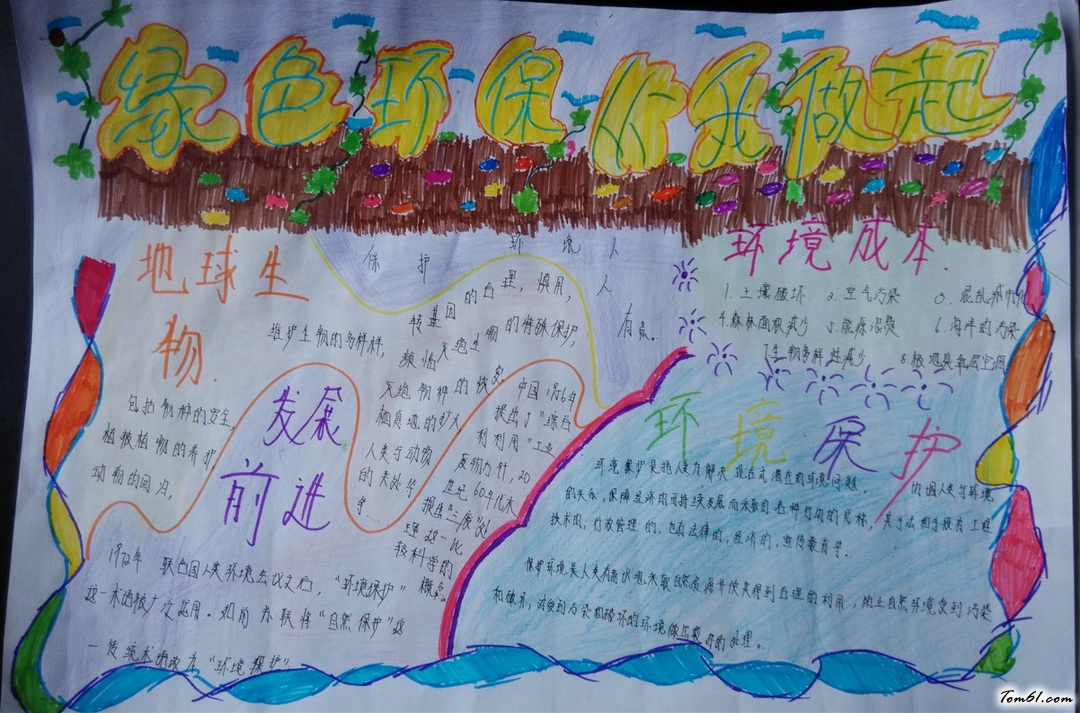 绿色环保从我做起
地球生
物.
包括物种的安全,
植被植物的养护,
动物的回归,
维护生物的多样性,
转基因的合理,慎用,
濒临灭绝生物的特殊保护,
灭绝物种的恢复,
栖息地的扩大
人类与动物
的关处等
等....
保护环境人人
有责.
发展
前进
中国1956年
提出了"综合
利用"工业
废物方针,20
世纪60年代末
提出"三废"处
理这一比
较科学的
概念.
1972年联合国人类环境会议以后,"环境保护"
这一术语被广泛采用。如前苏联将"自然保护"这
一传统术语改为"环境保护"
环境成本.
1.土壤破坏 2.空气污染 3.混乱城市化
4.森林面积减少 5.能源浪费 6.海洋的污染
7生物多样性减少 8.极地臭氧层空洞
环境保护
环境保护是指人类为解决现在或潜在的环境问题,
协调人类与环境
的关系,保障经济的可持续发展而采取的各种行动的总称,其方法和手段有工程
技术的,行政管理的,也有法律的,经济的,宣传教育等。
保护环境是人类有意识地采取自然资源并使其得到合理的利用,防止自然环境受到污染
和破坏;对受到污染和破坏的环境做
好的处理。
Tom61.com